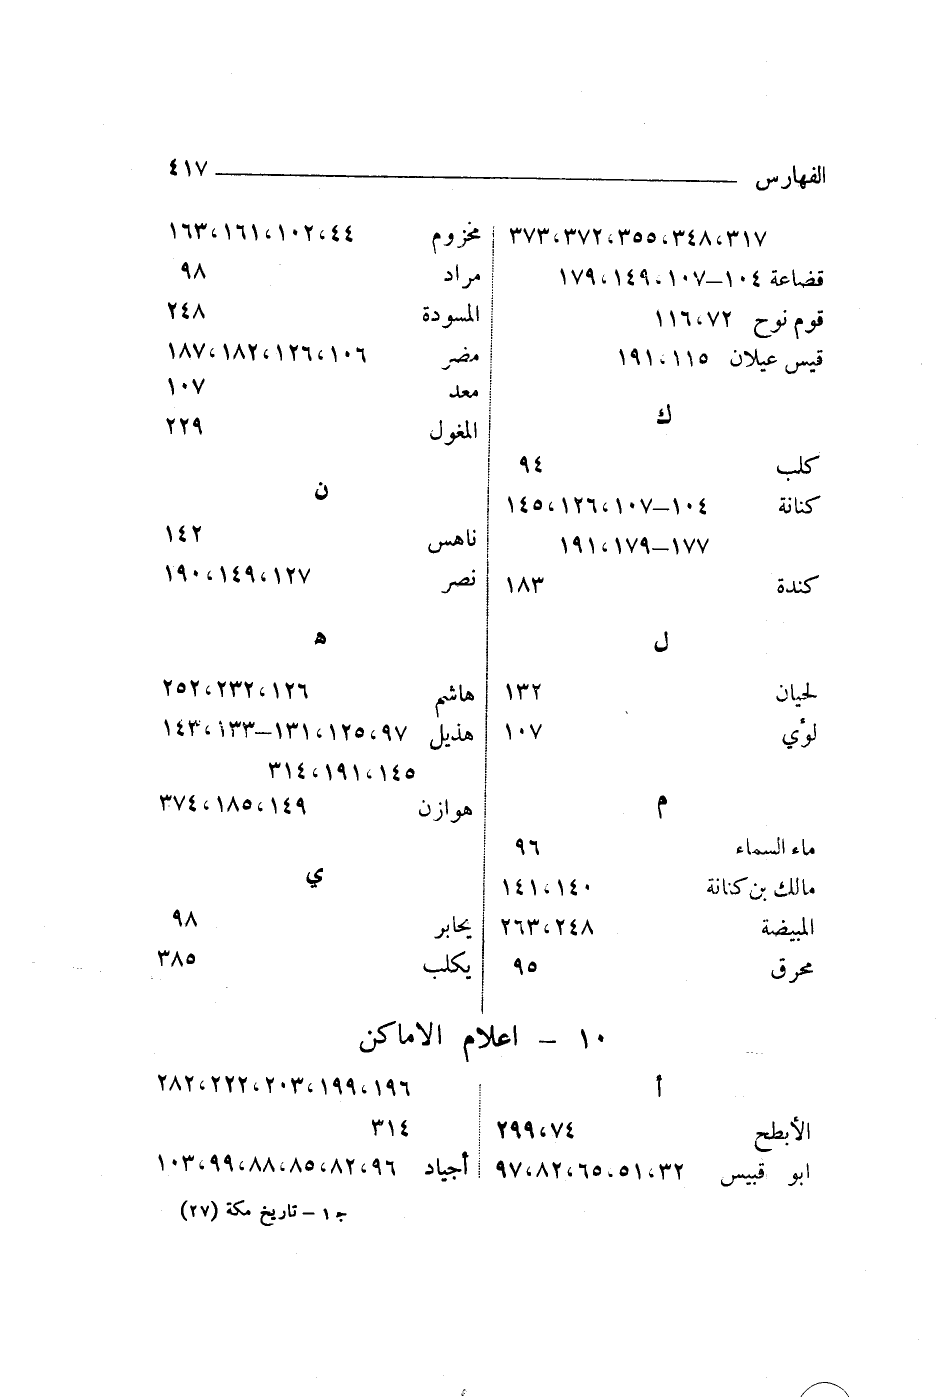 الفهارس ٤١٧
٣١٧،٣٤٨،٣٥٥،٣٧٢،٣٧٣
قضاعة ١٠٤–١٠٧،١٤٩،١٧٩
قوم نوح ٧٢،١١٦
قيس عيلان ١١٥،١٩١
ك
كلب ٩٤
كنانة ١٠٤–١٠٧،١٢٦،١٤٥
١٧٧–١٧٩،١٩١
كندة ١٨٣
ل
لحيان ١٣٢
لوأي ١٠٧
م
ماء السماء ٩٦
مالك بن كنانة ١٤٠،١٤١
المبيضة ٢٤٨،٢٦٣
محرق ٩٥
مخزوم ٤٤،١٠٢،١٦١،١٦٣
مراد ٩٨
المسودة ٢٤٨
مضر ١٠٦،١٢٦،١٨٢،١٨٧
معد ١٠٧
المغول ٢٢٩
ن
ناهس ١٤٢
نصر ١٢٧،١٤٩،١٩٠
ه
هاشم ١٢٦،٢٣٢،٢٥٢
هذيل ٩٧،١٢٥،١٣١–١٣٣،١٤٣
١٤٥،١٩١،٣١٤
هوازن ١٤٩،١٨٥،٣٧٤
ي
يحابر ٩٨
يكلب ٣٨٥
١٠ – اعلام الاماكن
أ
الأبطح ٧٤،٢٩٩
ابو قبيس ٣٢،٥١،٦٥،٨٢،٩٧
١٩٦،١٩٩،٢٠٣،٢٢٢،٢٨٢
٣١٤
أجياد ٩٦،٨٢،٨٥،٨٨،٩٩،١٠٣
ج١ – تاريخ مكة (٢٧)